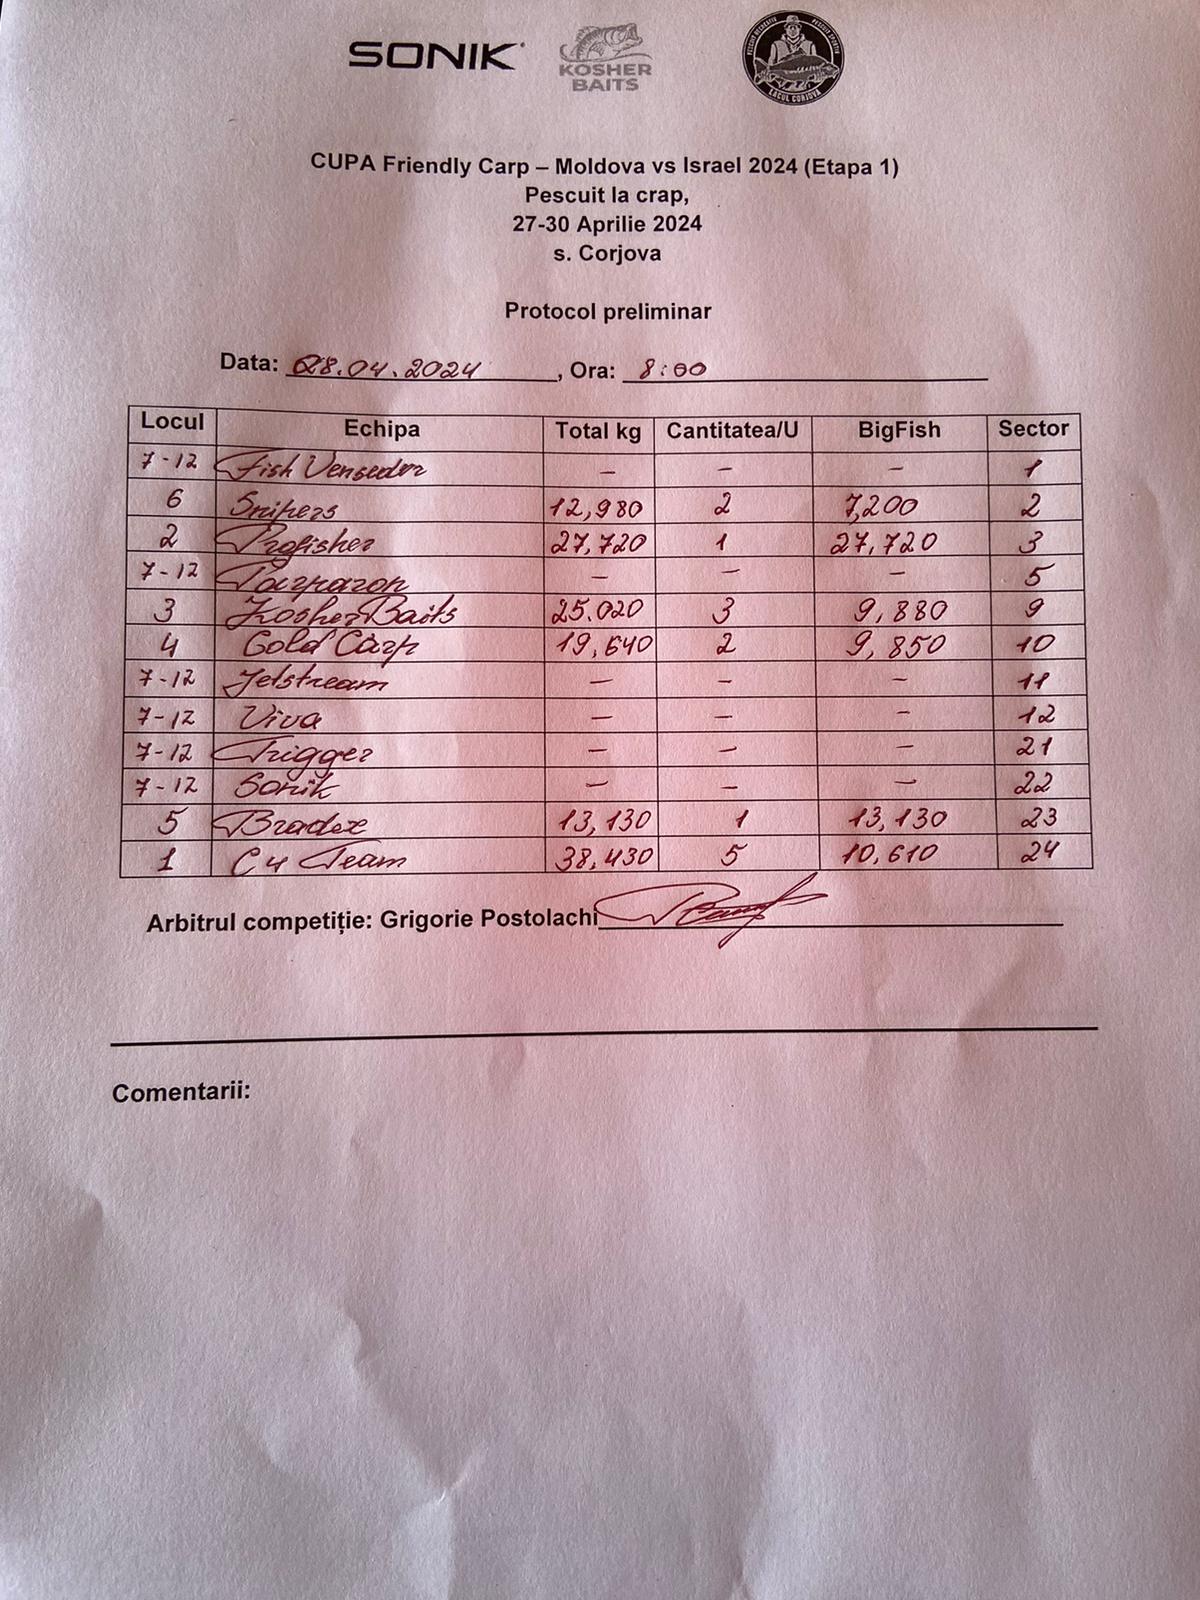 SONIK
KOSHER
BAITS
PESCUIT RECREATIV PESCUIT SPORTIV
LACUL CORJOVA
CUPA Friendly Carp – Moldova vs Israel 2024 (Etapa 1)
Pescuit la crap,
27-30 Aprilie 2024
s. Corjova
Protocol preliminar
Data: 28.04.2024, Ora: 8:00
Locul Echipa Total kg Cantitatea/U BigFish Sector
7-12 Fish Vensedor – – – 1
6 Snipers 12,980 2 7,200 2
2 Profisher 27,720 1 27,720 3
7-12 – – – 5
3 Kosher Baits 25.020 3 9,880 9
4 Gold Carp 19,640 2 9,850 10
7-12 Jetstream – – – 11
7-12 Viva – – – 12
7-12 Trigger – – – 21
7-12 Sonik – – – 22
5 Bradex 13,130 1 13,130 23
1 C4 Team 38,430 5 10,610 24
Arbitrul competiție: Grigorie Postolachi
Comentarii: